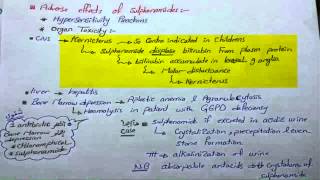 Adverse effects of sulphonamides :-
→ Hypersensitivity Reactions
→ Organ Toxicity :-
CNS → Kernicterus → So Contra indicated in Childrens
→ Sulphonamide displace bilirubin From plasma protein
→ bilirubin accumulate in basal ganglia
→ Motor disturbance
→ Kernicterus
→ liver → hepatitis
→ Bone Marrow depression → Aplastic anemia & Agranulocytosis
→ Haemolysis in patient with G6PD deficiency
2 antibiotic
Bone Marrow
depression
→ Chloramphenicol
→ Sulphonamide
case → sulphonamide if excreted in acidic urine
→ Crystallization, precipitation & even
stone formation
TTT → alkalinization of urine
N.B absorpable antacids → Crystalluria of
sulphonamide